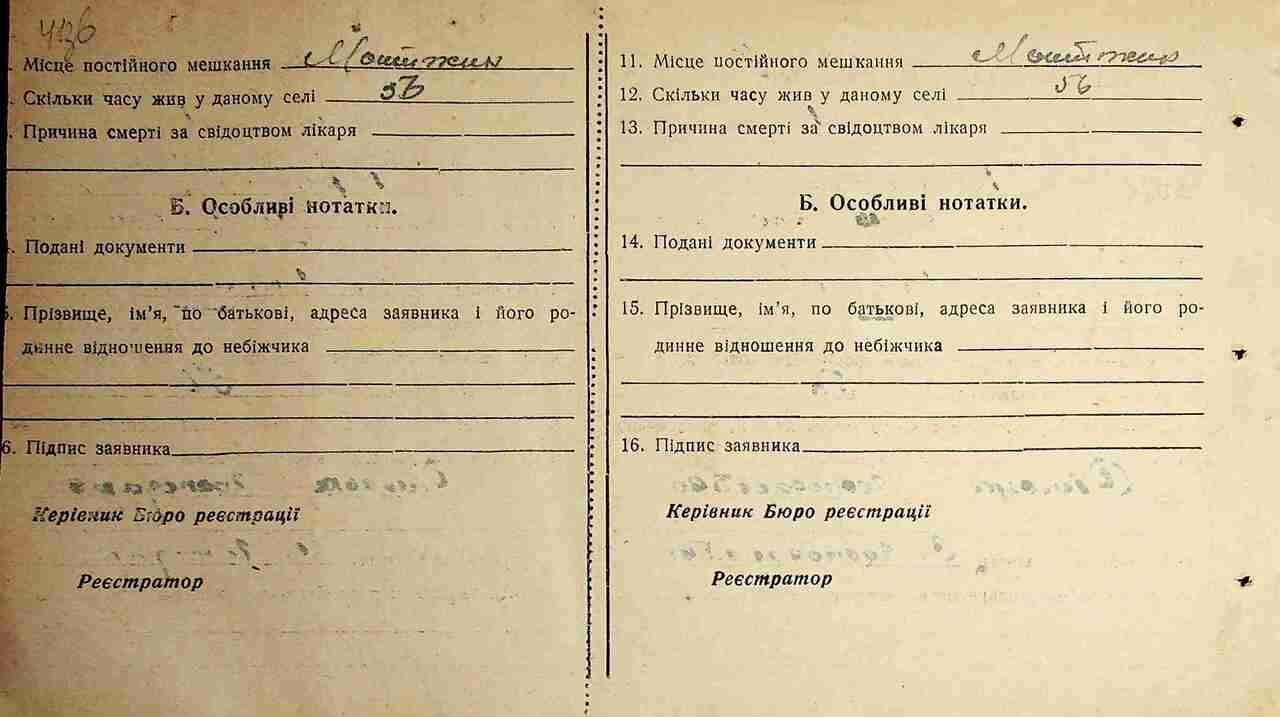 . Місце постійного мешкання Мотижин
. Скільки часу жив у даному селі 56
. Причина смерті за свідоцтвом лікаря
Б. Особливі нотатки.
. Подані документи
5. Прізвище, ім’я, по батькові, адреса заявника і його ро-
динне відношення до небіжчика
6. Підпис заявника
Керівник Бюро реєстрації
Реєстратор
11. Місце постійного мешкання Мотижин
12. Скільки часу жив у даному селі 56
13. Причина смерті за свідоцтвом лікаря
Б. Особливі нотатки.
14. Подані документи
15. Прізвище, ім’я, по батькові, адреса заявника і його ро-
динне відношення до небіжчика
16. Підпис заявника
Керівник Бюро реєстрації
Реєстратор